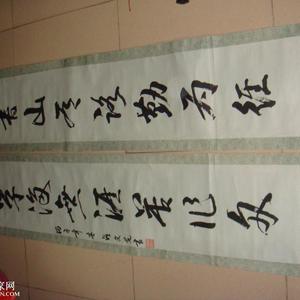 書山有路勤为徑
学海無涯苦作舟
家网